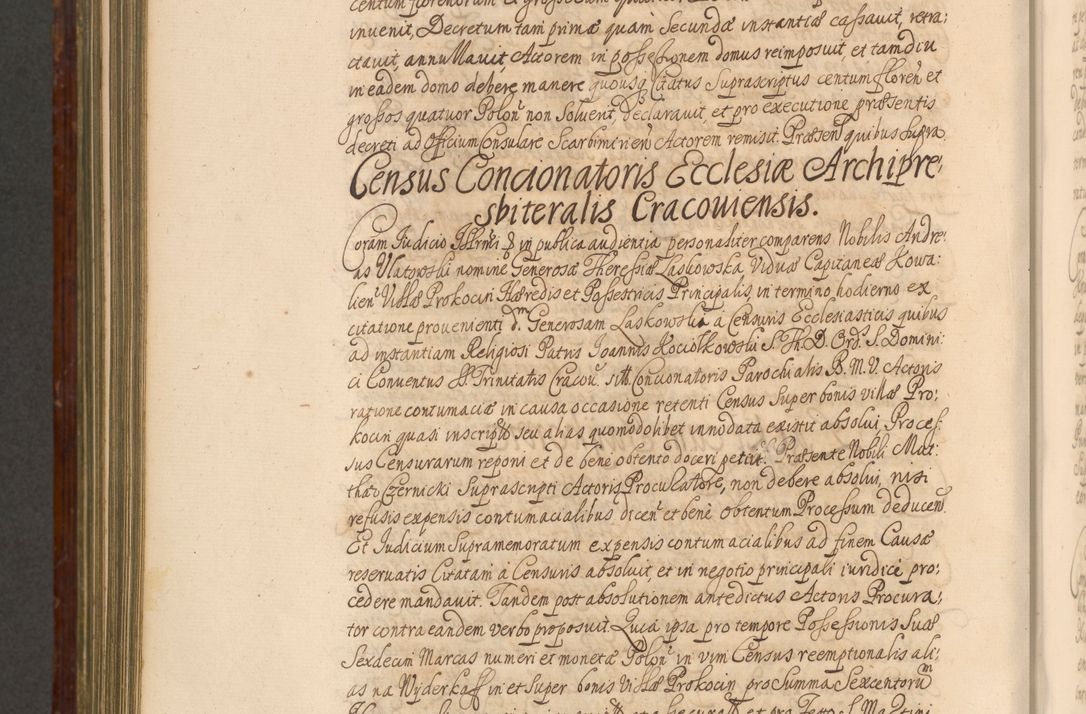 invenit, Decretum tam primæ quam Secundæ instantiæ cassavit, retra:
ctavit annullavit Actorem in possessionem domus reimposuit, et tamdiu
in eadem domo debere manere quousq Citatus Suprascriptus centum floren et
grossos quatuor Polon non Solverit, declaravit, et pro executione præsentis
decreti ad Officium Consulare Scarbimirien Actorem remisit. Præsen quibus supra
Census Concionatoris Ecclesiæ Archipre,
sbiteralis Cracoviensis.
Coram Judicio in publica audientia personaliter comparens Nobilis Andre:
as Ulatowski nomine Generosæ Theressiæ Laskowska Viduæ Capitaneæ Kowa:
lien Villæ Prokocin Hæredis et Possestricis Principalis, in termino hodierno ex
citatione provenienti Generosam Laskowska à Censuris Ecclesiasticis quibus
ad instantiam Religiosi Patris Joannis Kociolkowski S. Th. D. Ord. S. Domini:
ci Conventus S. Trinitatis Cracov. Concionatoris Parochialis B. M. V. Actoris
ratione contumaciæ in causa occasione retenti Census Super bonis villæ Pro:
kocin quasi inscripti seu alias quomodolibet innodata existit absolui, Proces:
sus Censurarum reponi et de bene obtento doceri petiit. Præsente Nobili Mat:
thæo Czernicki Suprascripti Actoris Procuratore, non debere absolvi, nisi
refusis expensis contumacialibus dicen et bene obtentum Processum deducen
Et Judicium Supramemoratum expensis contumacialibus ad finem Causæ
reservatis Citatam à Censuris absolvit, et in negotio principali iuridice pro:
cedere mandavit. Tandem post absolutionem antedictus Actoris Procura:
tor contra eandem verbo proposuit. Quia ipsa pro tempore Possessionis Suæ
Sexdecim Marcas numeri et monetæ Polon in vim Census reemptionalis ali:
as na Wyderkaff in et Super bonis Villæ Prokocin pro Summa Sexcentorum